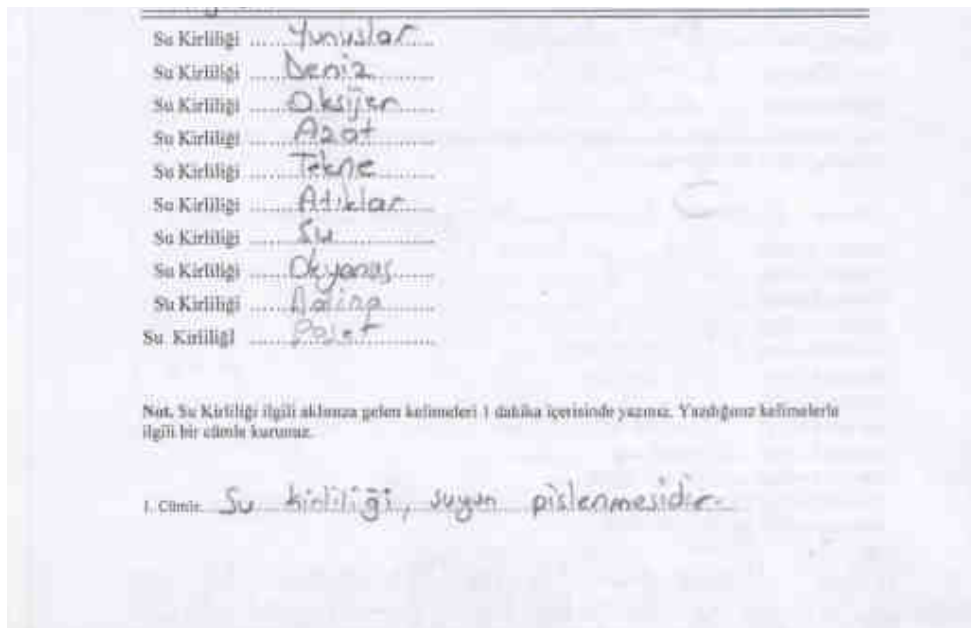 Su Kirliliği ...... Yunuslar
Su Kirliliği ...... Deniz
Su Kirliliği ...... Oksijen
Su Kirliliği ...... Azot
Su Kirliliği ...... Tekne
Su Kirliliği ...... Atıklar
Su Kirliliği ...... Su
Su Kirliliği ...... Okyanus
Su Kirliliği ......
Su Kirliliği ...... Poşet
Not. Su Kirliliği ilgili aklınıza gelen kelimeleri 1 dakika içerisinde yazınız. Yazdığınız kelimelerle
ilgili bir cümle kurunuz.
1. Cümle. Su kirliliği, suyun pislenmesidir.